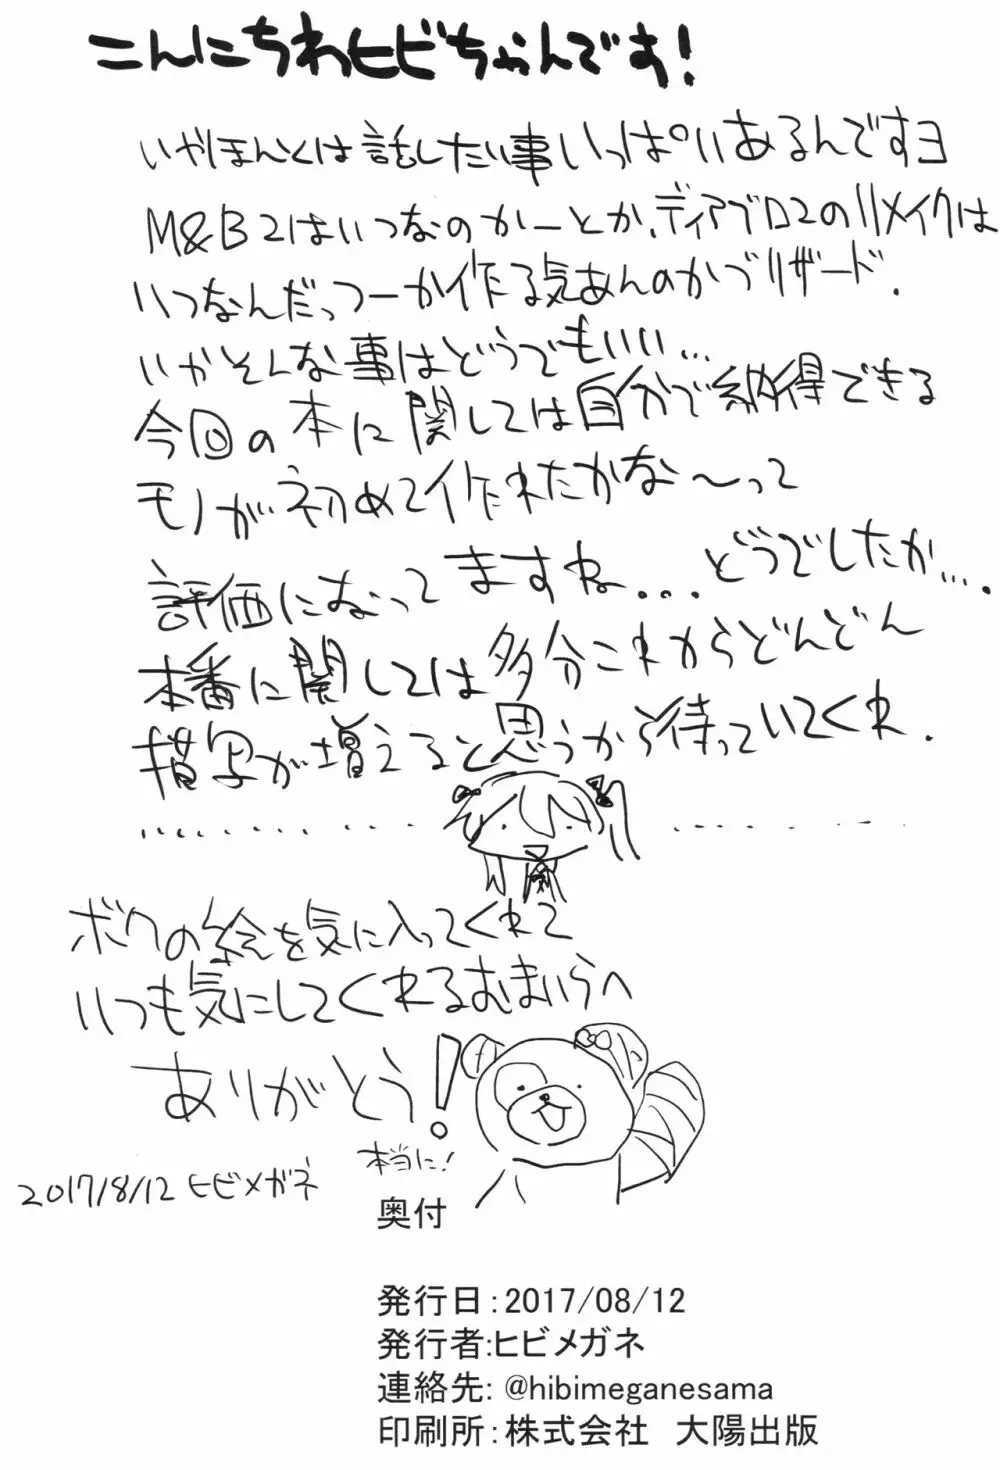 こんにちわヒビちゃんです!
いやほんとは話したい事いっぱいあるんですヨ
M&B2はいつなのかーとか、ディアブロ2のリメイクは
いつなんだっつーか作る気あんのかブリザード.
いやそんな事はどうでもいい…
今回の本に関しては自分で納得できる
モノが初めて作れたかな〜って
評価になってますね...どうでしたか....
本番に関しては多分これからどんどん
描写が増えると思うから待っていてくれ.
ボクの絵を気に入ってくれて
いつも気にしてくれるおまいらへ
ありがとう!
本当に!
2017/8/12 ヒビメガネ
奥付
発行日:2017/08/12
発行者:ヒビメガネ
連絡先: @hibimeganesama
印刷所:株式会社 大陽出版